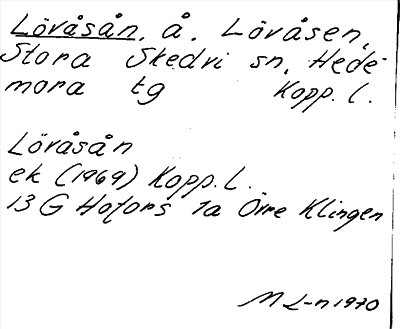 Lövåsån, å. Lövåsen,
Stora Skedvi sn, Hede-
mora tg Kopp. l.
Lövåsån
ek (1969) Kopp. L.
13 G Hofors 1a Övre Klingen
M L-n 1970